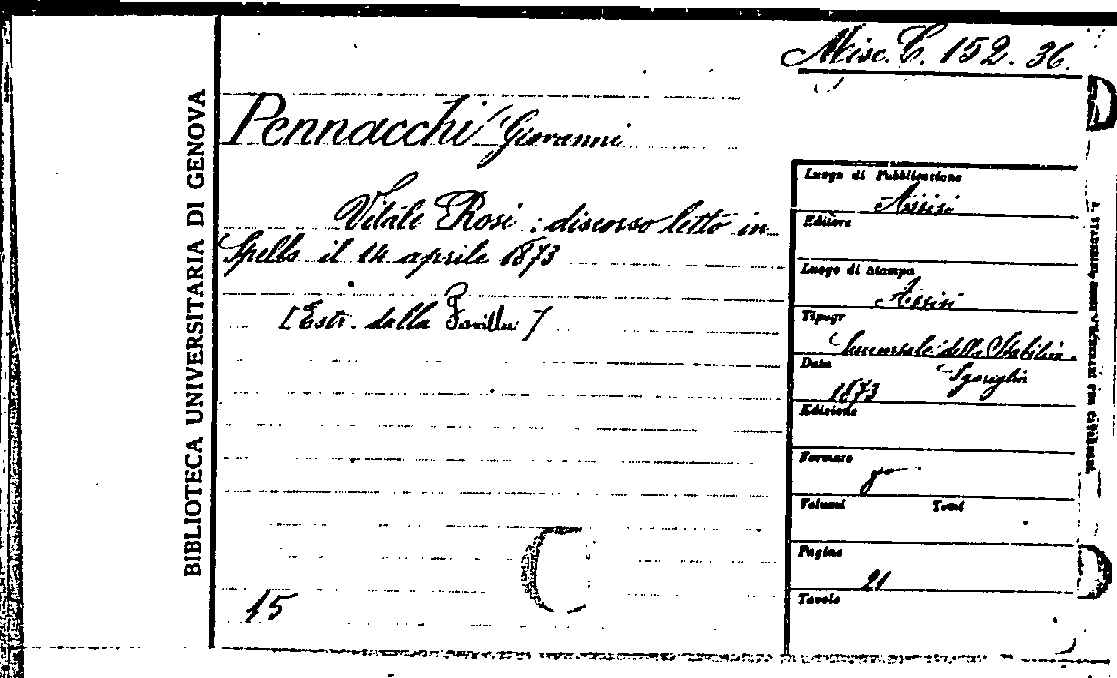 Misc. C. 152. 36.
BIBLIOTECA UNIVERSITARIA DI GENOVA
Pennacchi Giovanni
Vitale Rosi : discorso letto in
Spello il 14 aprile 1873
[Estr. dalla Favilla]
15
Luogo di Pubblicazione
Assisi
Editore
Luogo di Stampa
Assisi
Tipogr
Succursale dello Stabilim.
Sgariglia
Data
1873
Edizione
Formato
Volumi Tomi
Pagine
21
Tavole